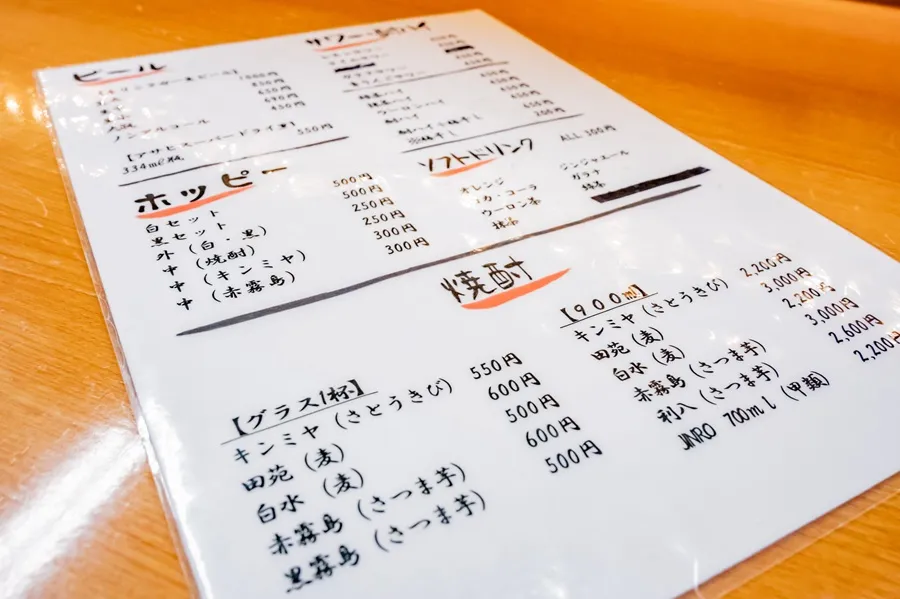 ビール
ノンアルコール 450円
【アサヒスーパードライ】
334ml 瓶 550円
サワー・酎ハイ
ウーロンハイ
ソフトドリンク ALL 300円
オレンジ ジンジャエール
コカ・コーラ ガラナ
ウーロン茶 緑茶
抹茶
ホッピー
白セット 500円
黒セット 500円
外(白・黒) 250円
中(焼酎) 250円
中(キンミヤ) 300円
中(赤霧島) 300円
焼酎
【グラス1杯】
キンミヤ(さとうきび) 550円
田苑(麦) 600円
白水(麦) 500円
赤霧島(さつま芋) 600円
黒霧島(さつま芋) 500円
【900ml】
キンミヤ(さとうきび) 2,200円
田苑(麦) 3,000円
白水(麦) 2,200円
赤霧島(さつま芋) 3,000円
利八(さつま芋) 2,600円
JINRO 700ml(甲類) 2,200円